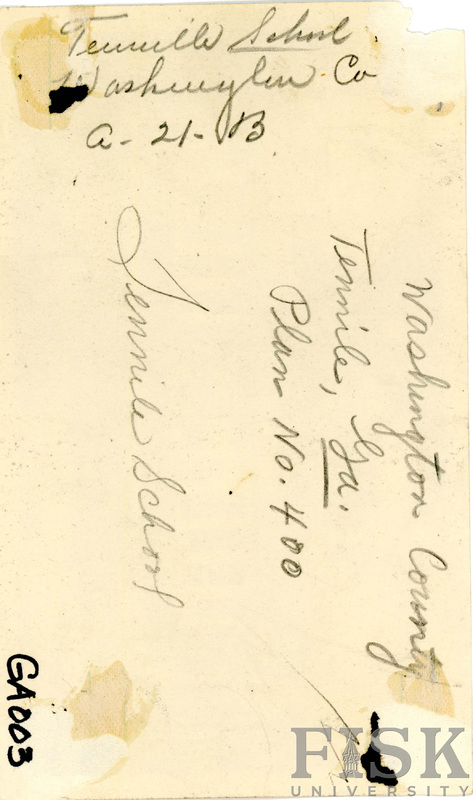 Tennille School
Washington Co
A-21-B
Washington County
Tennile, Ga.
Plan No. 400
Tennile School
GA003
FISK
UNIVERSITY